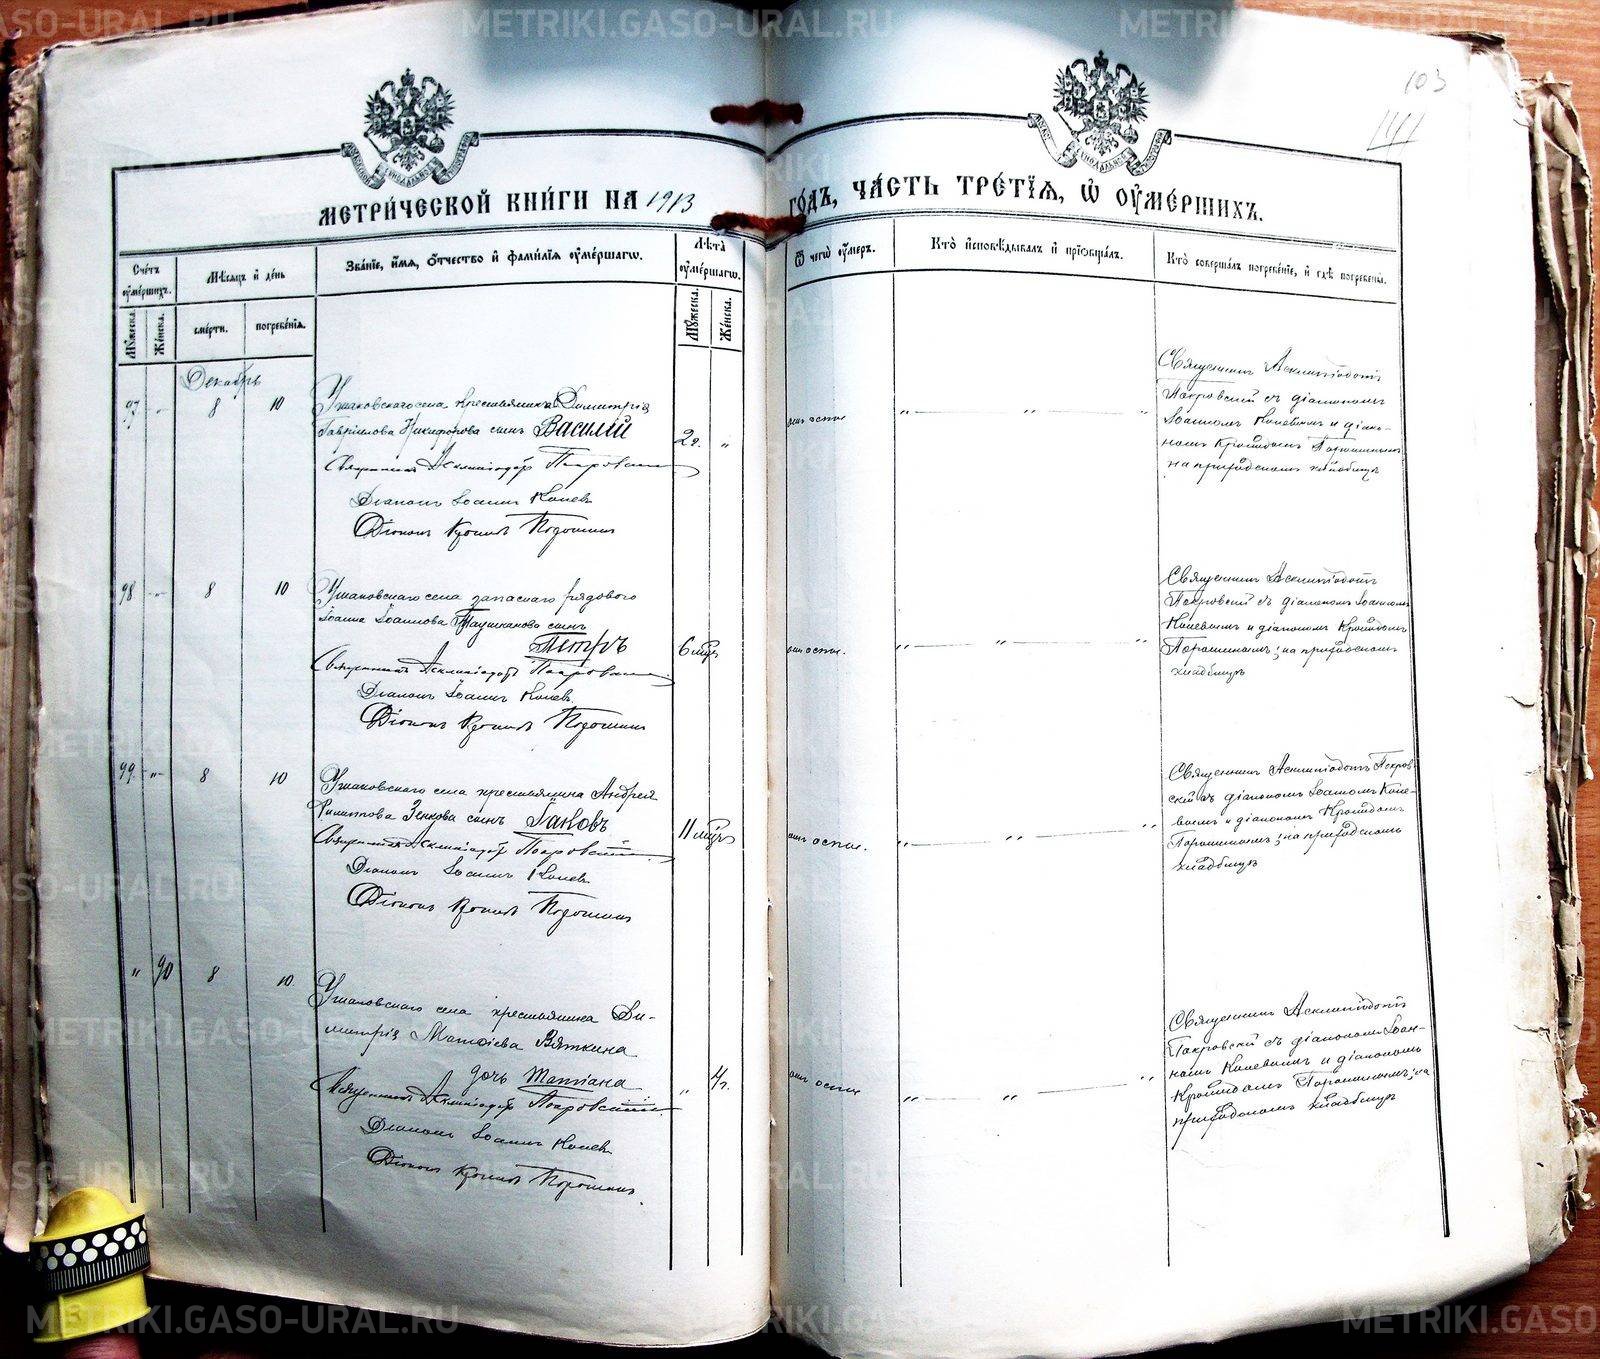 103
141
МЕТРИ́ЧЕСКОЙ КНИ́ГИ НА 1913
ГО́ДЪ, ЧА́СТЬ ТРЕ́ТІѦ, Ѽ ОУ҆МЕ́РШИХЪ.
Сче́тъ оу҆ме́ршихъ.
Мѣ́сяцъ и҆ де́нь
Зва́ніе, и҆́мя, ѻ҆́тчество и҆ фами́лія оу҆ме́ршагѡ.
Лѣ́та оу҆ме́ршагѡ.
Ѿ чегѡ̀ оу҆́меръ.
Кто̀ и҆сповѣ́дывалъ и҆ прїѡбща́лъ.
Кто̀ соверша́лъ погребе́ніе, и҆ гдѣ̀ погребены̀.
Му́жеска.
Же́нска.
сме́рти.
погребе́нія.
Му́жеска.
Же́нска.
Декабрь
97 -"- 8 10
Ушаковскаго села крестьянина Димитрія
Гавріилова Никифорова сынъ Василій
2 г. "
отъ оспы
" — " — "
Священникъ Асклипіодотъ Покровскій
Діаконъ Іоаннъ Копевъ
Діаконъ Кронидъ Порошинъ
Священникъ Асклипіодотъ
Покровскій съ діакономъ
Іоанномъ Копевымъ и діако-
номъ Кронидомъ Порошинымъ
на приходскомъ кладбищѣ
98 -"- 8 10
Ушаковскаго села запаснаго рядового
Іоанна Іоаннова Таушканова сынъ
Петръ
6 мѣс.
отъ оспы.
" — " — "
Священникъ Асклипіодотъ Покровскій
Діаконъ Іоаннъ Копевъ
Діаконъ Кронидъ Порошинъ
Священникъ Асклипіодотъ
Покровскій съ діакономъ Іоанномъ
Копевымъ и діакономъ Кронидомъ
Порошинымъ; на приходскомъ
кладбищѣ
99 -"- 8 10
Ушаковскаго села крестьянина Андрея
Филиппова Зенкова сынъ Іаковъ
11 мѣс.
отъ оспы.
" — " — "
Священникъ Асклипіодотъ Покровскій
Діаконъ Іоаннъ Копевъ
Діаконъ Кронидъ Порошинъ
Священникъ Асклипіодотъ Покров-
скій съ діакономъ Іоанномъ Копе-
вымъ и діакономъ Кронидомъ
Порошинымъ; на приходскомъ
кладбищѣ
" 90 8 10
Ушаковскаго села крестьянина Ди-
митрія Матѳіева Вяткина
дочь Татіана
" 4 г.
отъ оспы
" — " — "
Священникъ Асклипіодотъ Покровскій
Діаконъ Іоаннъ Копевъ
Діаконъ Кронидъ Порошинъ.
Священникъ Асклипіодотъ
Покровскій съ діакономъ Іоан-
номъ Копевымъ и діакономъ
Кронидомъ Порошинымъ; на
приходскомъ кладбищѣ
METRIKI.GASO-URAL.RU